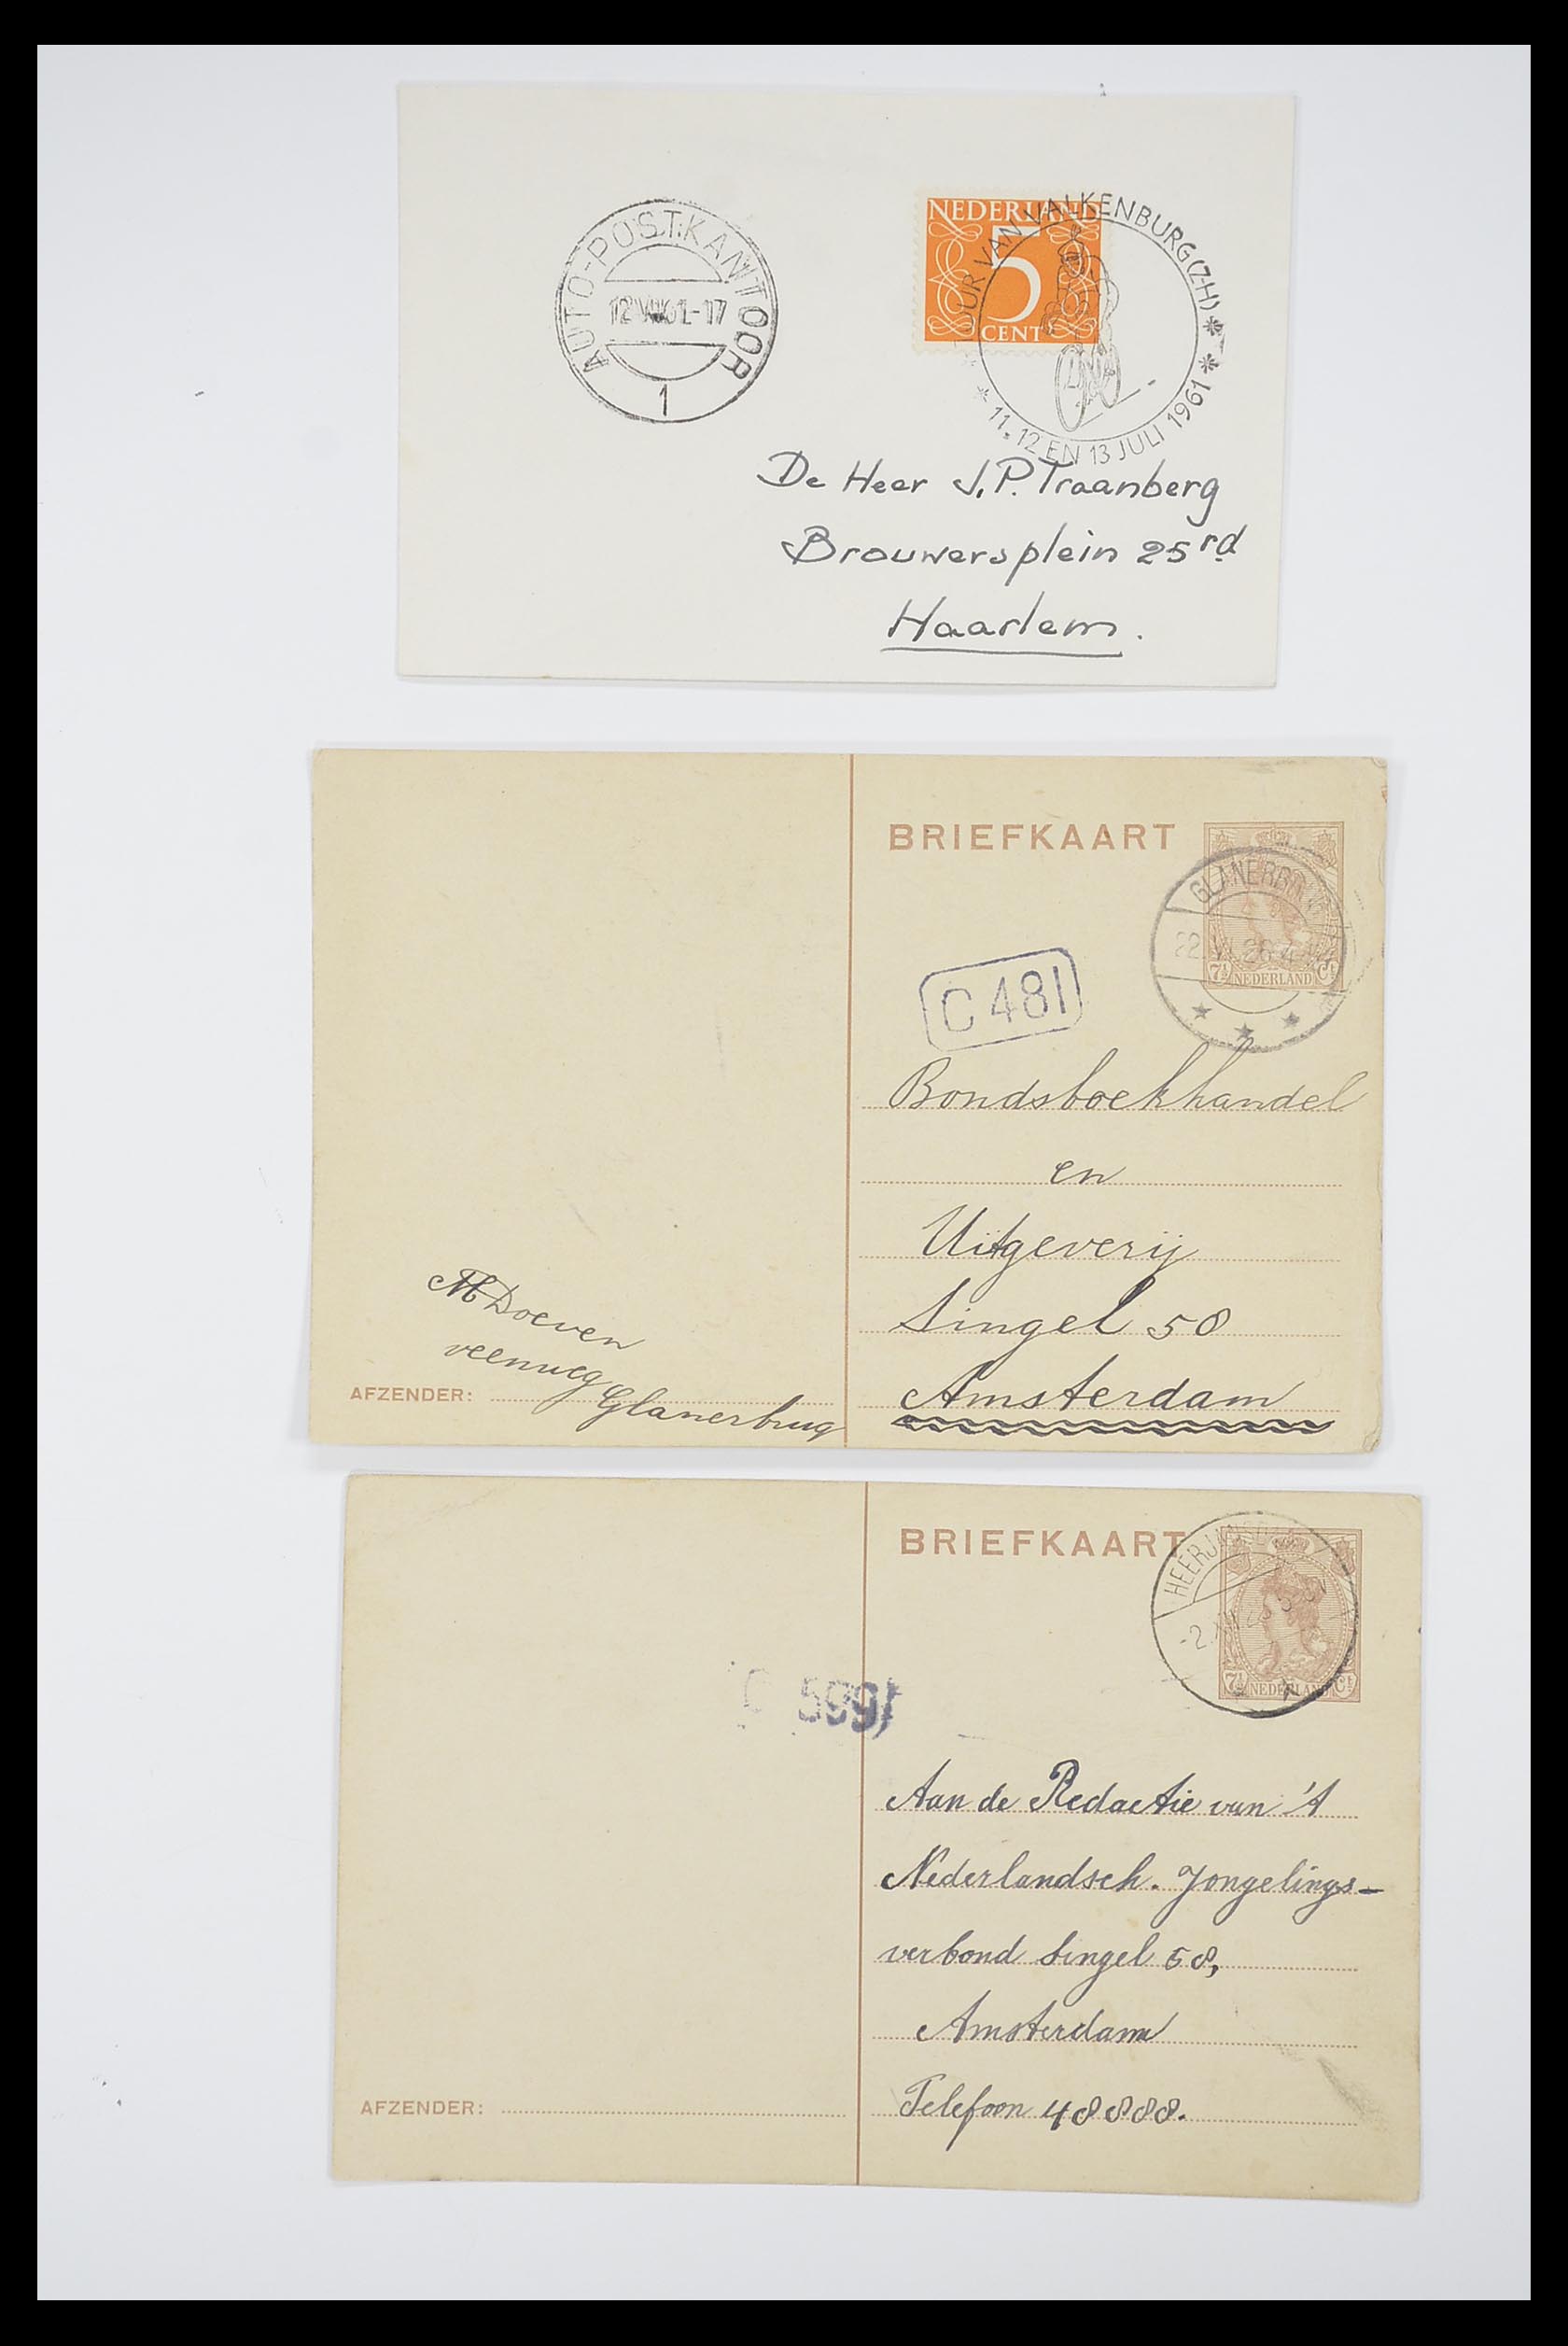 AUTO-POSTKANTOOR
1
NEDERLAND
5
CENT
TOUR VAN VALKENBURG (Z-H)
11, 12 EN 13 JULI 1961
De Heer J.P. Traanberg
Brouwersplein 25rd
Haarlem.
BRIEFKAART
GLANERBRUG
7½ NEDERLAND CT
C 481
Bondsboekhandel
en
Uitgeverij
Singel 58
Amsterdam
M Doeven
veenweg
AFZENDER:
Glanerbrug
BRIEFKAART
7½ NEDERLAND CT
C 599
Aan de Redactie van 't
Nederlandsch. Jongelings-
verbond Singel 58,
Amsterdam
Telefoon 48888.
AFZENDER: